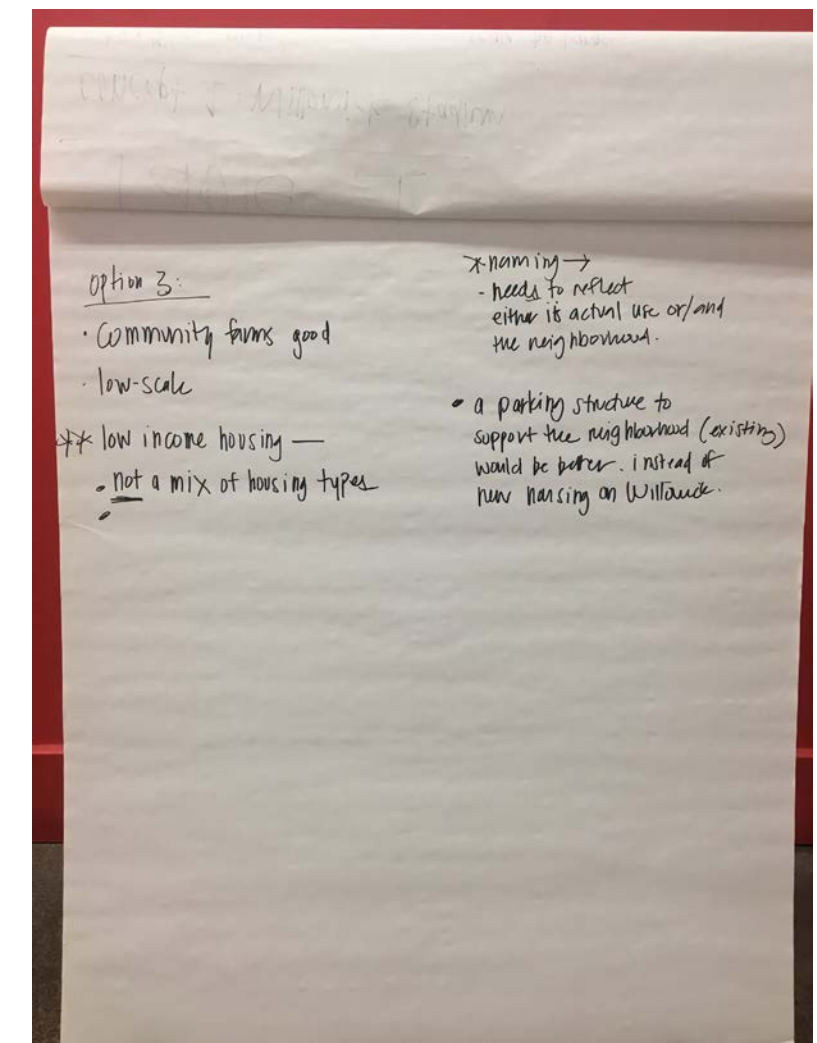 option 3:
· Community farms good
· low-scale
** low income housing —
• not a mix of housing types
•
*naming →
- needs to reflect
either its actual use or/and
the neighborhood.
• a parking structure to
support the neighborhood (existing)
would be better. instead of
new housing on